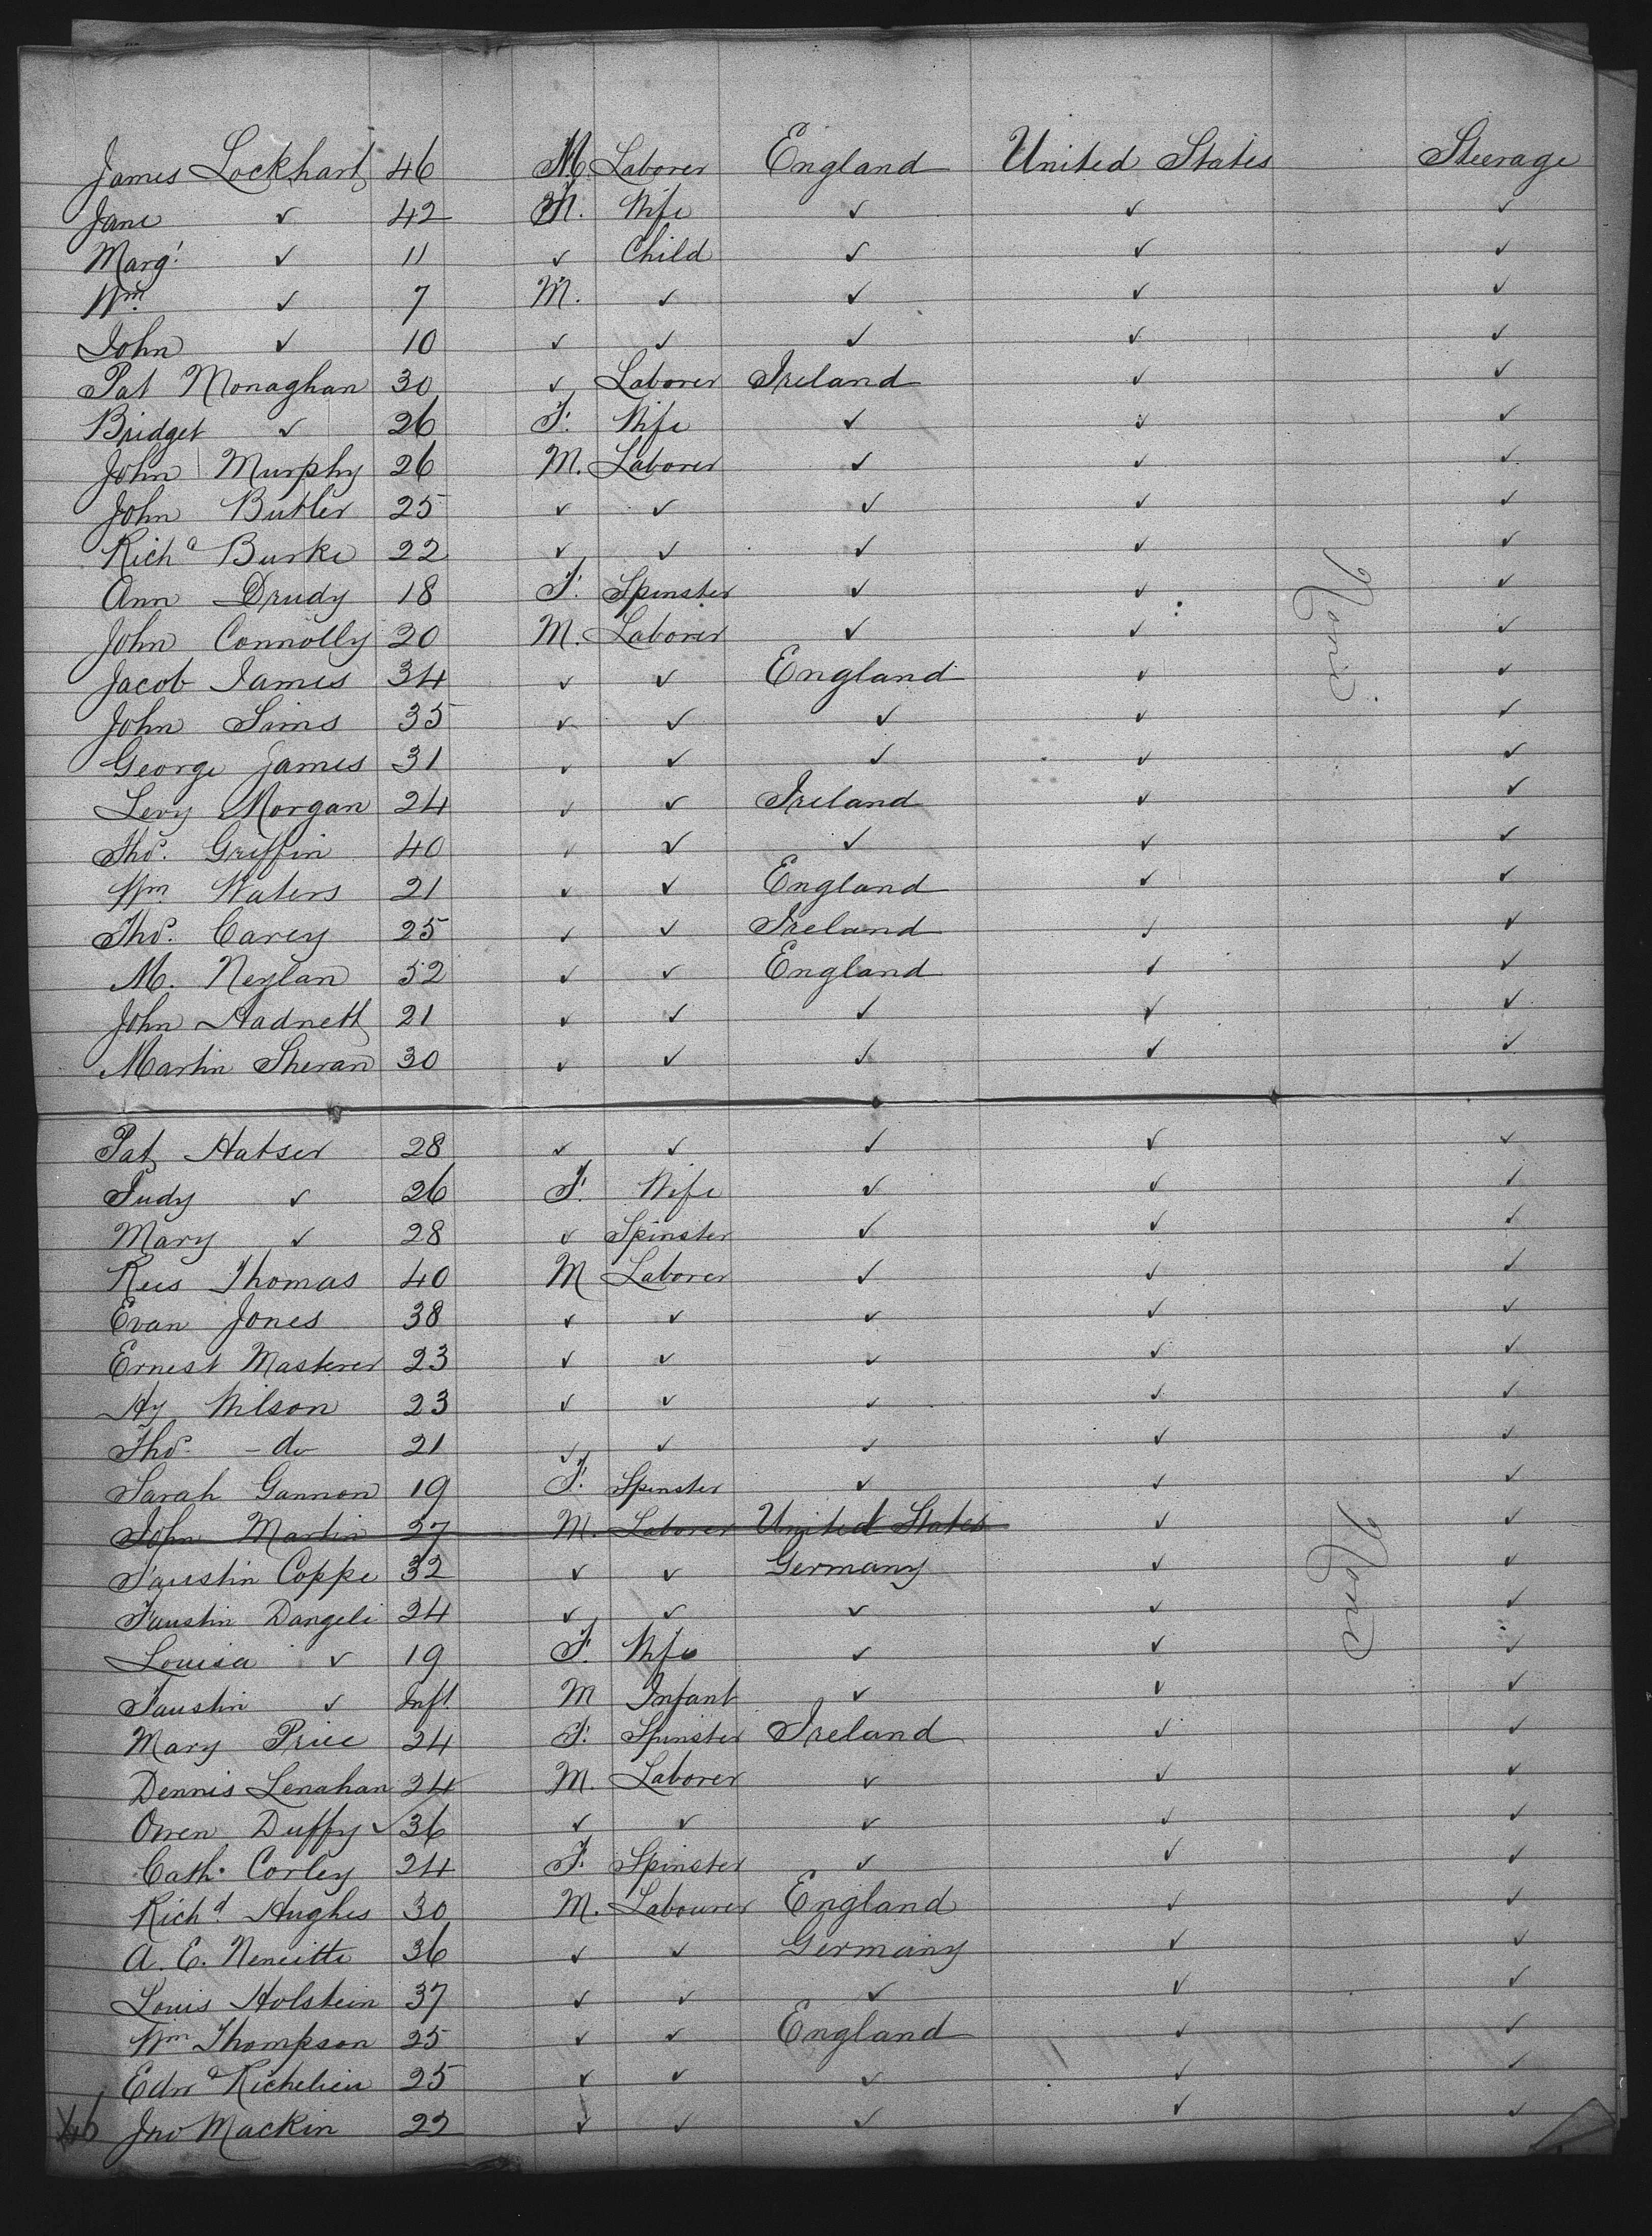 James Lockhart 46 M. Laborer England United States Steerage
Jane ✓ 42 F. Wife ✓ ✓ ✓
Margt ✓ 11 ✓ Child ✓ ✓ ✓
Wm ✓ 7 M. ✓ ✓ ✓ ✓
John ✓ 10 ✓ ✓ ✓ ✓ ✓
Pat Monaghan 30 ✓ Laborer Ireland ✓ ✓
Bridget ✓ 26 F. Wife ✓ ✓ ✓
John Murphy 26 M. Laborer ✓ ✓ ✓
John Butler 25 ✓ ✓ ✓ ✓ ✓
Richd Burke 22 ✓ ✓ ✓ ✓ ✓
Ann Drudy 18 F. Spinster ✓ ✓ ✓
John Connolly 20 M. Laborer ✓ ✓ None ✓
Jacob James 34 ✓ ✓ England ✓ ✓
John Sims 35 ✓ ✓ ✓ ✓ ✓
George James 31 ✓ ✓ ✓ ✓ ✓
Levy Morgan 24 ✓ ✓ Ireland ✓ ✓
Thos. Griffin 40 ✓ ✓ ✓ ✓ ✓
Wm Waters 21 ✓ ✓ England ✓ ✓
Thos. Carey 25 ✓ ✓ Ireland ✓ ✓
M. Neylan 52 ✓ ✓ England ✓ ✓
John Hadnett 21 ✓ ✓ ✓ ✓ ✓
Martin Sheran 30 ✓ ✓ ✓ ✓ ✓
Pat Hatser 28 ✓ ✓ ✓ ✓ ✓
Judy ✓ 26 F. Wife ✓ ✓ ✓
Mary ✓ 28 ✓ Spinster ✓ ✓ ✓
Rees Thomas 40 M Laborer ✓ ✓ ✓
Evan Jones 38 ✓ ✓ ✓ ✓ ✓
Ernest Masterer 23 ✓ ✓ ✓ ✓ ✓
Hy Wilson 23 ✓ ✓ ✓ ✓ ✓
Thos - do 21 ✓ ✓ ✓ ✓ ✓
Sarah Gannon 19 F. Spinster ✓ ✓ ✓
John Martin 27 M. Laborer United States ✓ ✓
Faustin Coppe 32 ✓ ✓ Germany ✓ None ✓
Faustin Dangeli 24 ✓ ✓ ✓ ✓ ✓
Louisa ✓ 19 F. Wife ✓ ✓ ✓
Faustin ✓ Inft. M Infant ✓ ✓ ✓
Mary Price 24 F. Spinster Ireland ✓ ✓
Dennis Lenahan 24 M. Laborer ✓ ✓ ✓
Owen Duffy ✓ 36 ✓ ✓ ✓ ✓ ✓
Cath. Corley 24 F. Spinster ✓ ✓ ✓
Richd. Hughes 30 M. Labourer England ✓ ✓
A. E. 36 ✓ ✓ Germany ✓ ✓
Louis Holstein 37 ✓ ✓ ✓ ✓ ✓
Wm Thompson 25 ✓ ✓ England ✓ ✓
Edwd Richelieu 25 ✓ ✓ ✓ ✓ ✓
Jno Mackin 22 ✓ ✓ ✓ ✓ ✓